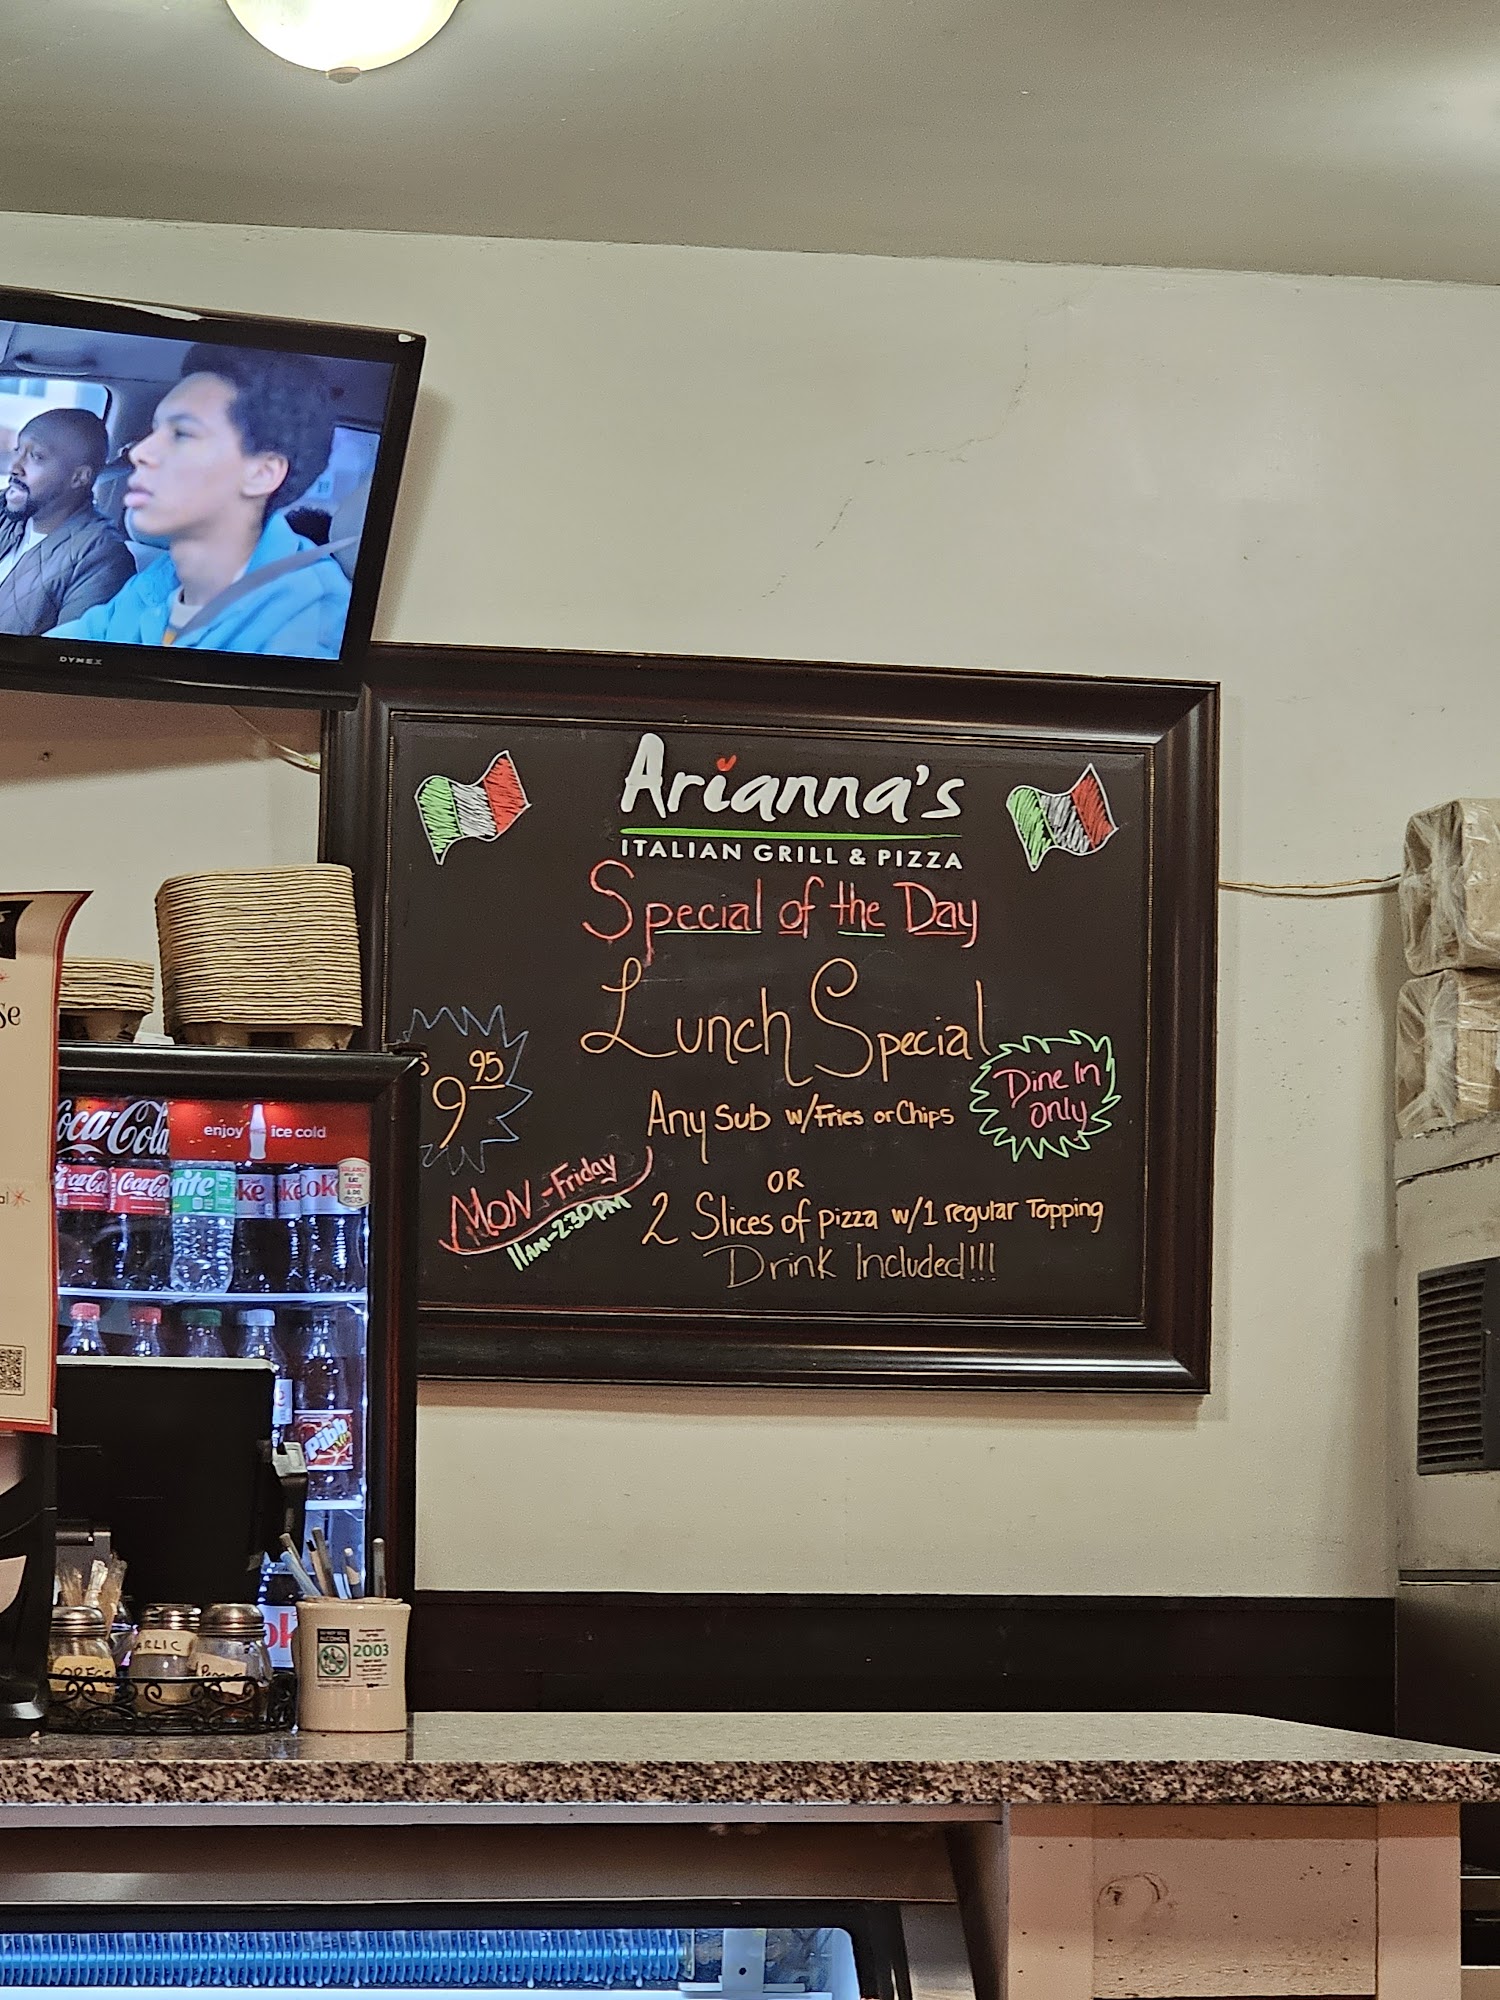 DYNEX
Arianna's
ITALIAN GRILL & PIZZA
Special of the Day
Lunch Special
9 95
Dine In
only
Any Sub w/Fries or Chips
OR
2 Slices of pizza w/1 regular Topping
Drink Included!!!
Mon-Friday
11am-2:30pm
Coca-Cola
enjoy ice cold
Pibb
ALCOHOL
2003